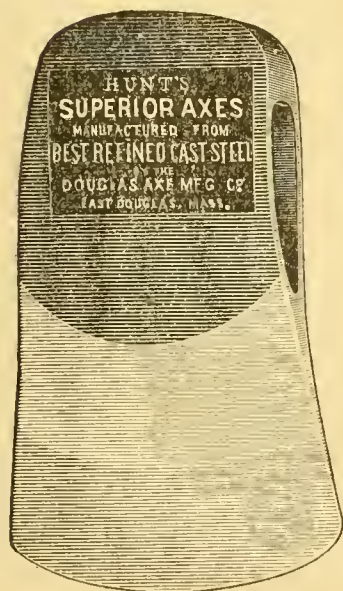 HUNT'S
SUPERIOR AXES
MANUFACTURED FROM
BEST REFINED CAST STEEL
BY THE
DOUGLAS AXE MFG. CO.
EAST DOUGLAS, MASS.